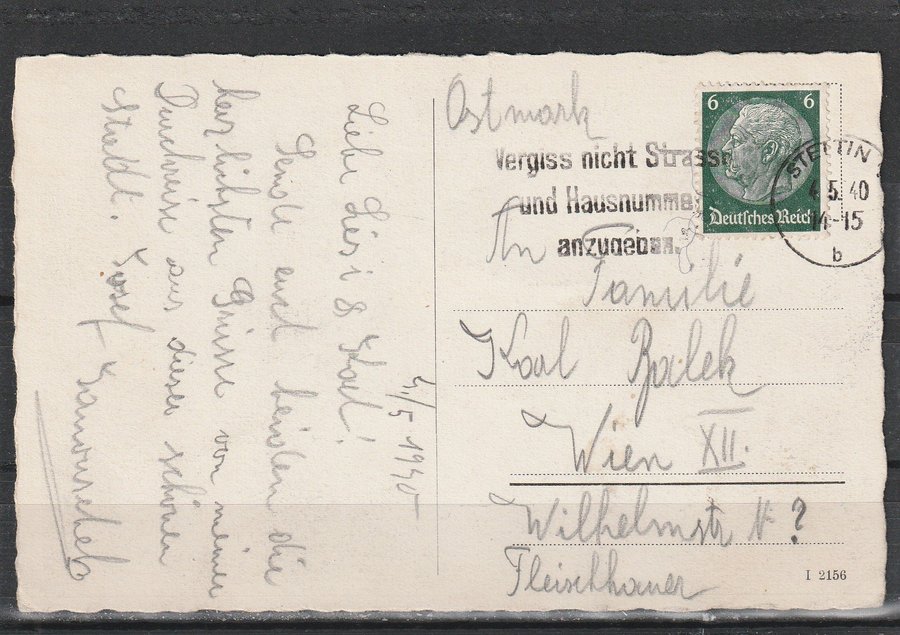 4/5 1940
Liebe Lisi & Karl!
Sende euch beiden die
herzlichsten Grüsse von meiner
Durchreise aus dieser schönen
Stadt. Josef
Ostmark
Vergiss nicht Strasse
und Hausnummer
anzugeben.
6 6
Deutsches Reich
STETTIN
4.5.40
14-15
b
An
Familie
Karl Balek
Wien XII.
Wilhelmstr N ?
Fleischhauer
I 2156